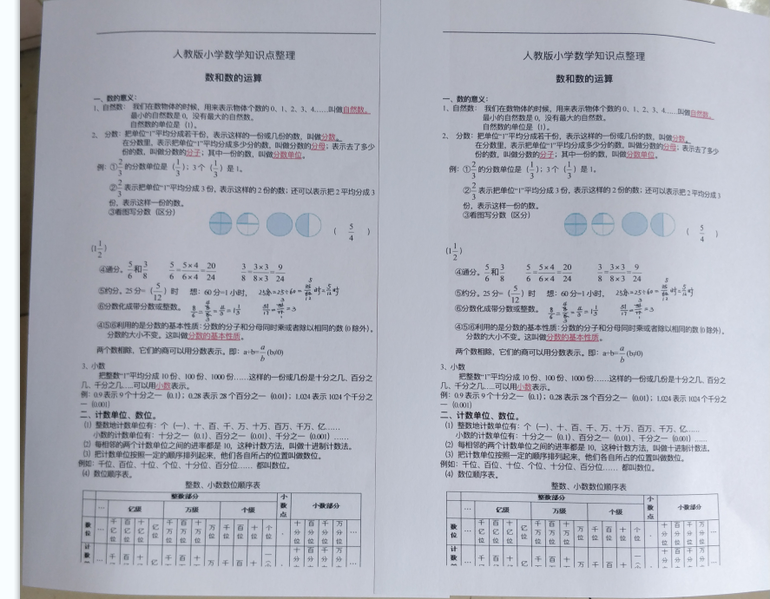 人教版小学数学知识点整理
数和数的运算
一、数的意义：
1、自然数： 我们在数物体的时候，用来表示物体个数的 0、1、2、3、4……叫做自然数。
最小的自然数是 0，没有最大的自然数。
自然数的单位是（1）。
2、分数：把单位“1”平均分成若干份，表示这样的一份或几份的数，叫做分数。
在分数里，表示把单位“1”平均分成多少分的数，叫做分数的分母；表示去了多少
份的数，叫做分数的分子；其中一份的数，叫做分数单位。
例：①2/3 的分数单位是（1/3）；3 个（1/3）是 1。
②2/3 表示把单位“1”平均分成 3 份，表示这样的 2 份的数；还可以表示把 2 平均分成 3
份，表示这样一份的数。
③看图写分数（区分）
（ 5/4 ）
(1 1/2)
④通分。5/6 和 3/8 5/6=5×4/6×4=20/24 3/8=3×3/8×3=9/24
⑤约分。25 分=（5/12）时 想：60 分=1 小时，
⑥分数化成带分数或整数。
④⑤⑥利用的是分数的基本性质：分数的分子和分母同时乘或者除以相同的数（0 除外），
分数的大小不变。这叫做分数的基本性质。
两个数相除，它们的商可以用分数表示。即：a÷b=a/b (b≠0)
3、小数
把整数“1”平均分成 10 份、100 份、1000 份……这样的一份或几份是十分之几、百分之
几、千分之几……可以用小数表示。
例：0.9 表示 9 个十分之一（0.1）；0.28 表示 28 个百分之一（0.01）；1.024 表示 1024 个千分之
一（0.001）
二、计数单位、数位。
(1) 整数地计数单位有：个（一）、十、百、千、万、十万、百万、千万、亿……
小数的计数单位有：十分之一（0.1）、百分之一（0.01）、千分之一（0.001）……
(2) 每相邻的两个计数单位之间的进率都是 10，这种计数方法，叫做十进制计数法。
(3) 把计数单位按照一定的顺序排列起来，他们各自所占的位置叫做数位。
例如：千位、百位、十位、个位、十分位、百分位…… 都叫数位。
(4) 数位顺序表。
整数、小数数位顺序表
整数部分 小数点 小数部分
… 亿级 万级 个级
数位 … 千亿位 百亿位 十亿位 亿位 千万位 百万位 十万位 万位 千位 百位 十位 个位 . 十分位 百分位 千分位 万分位 …
人教版小学数学知识点整理
数和数的运算
一、数的意义：
1、自然数： 我们在数物体的时候，用来表示物体个数的 0、1、2、3、4……叫做自然数。
最小的自然数是 0，没有最大的自然数。
自然数的单位是（1）。
2、分数：把单位“1”平均分成若干份，表示这样的一份或几份的数，叫做分数。
在分数里，表示把单位“1”平均分成多少分的数，叫做分数的分母；表示去了多少
份的数，叫做分数的分子；其中一份的数，叫做分数单位。
例：①2/3 的分数单位是（1/3）；3 个（1/3）是 1。
②2/3 表示把单位“1”平均分成 3 份，表示这样的 2 份的数；还可以表示把 2 平均分成 3
份，表示这样一份的数。
③看图写分数（区分）
（ 5/4 ）
(1 1/2)
④通分。5/6 和 3/8 5/6=5×4/6×4=20/24 3/8=3×3/8×3=9/24
⑤约分。25 分=（5/12）时 想：60 分=1 小时，
⑥分数化成带分数或整数。
④⑤⑥利用的是分数的基本性质：分数的分子和分母同时乘或者除以相同的数（0 除外），
分数的大小不变。这叫做分数的基本性质。
两个数相除，它们的商可以用分数表示。即：a÷b=a/b (b≠0)
3、小数
把整数“1”平均分成 10 份、100 份、1000 份……这样的一份或几份是十分之几、百分之
几、千分之几……可以用小数表示。
例：0.9 表示 9 个十分之一（0.1）；0.28 表示 28 个百分之一（0.01）；1.024 表示 1024 个千分之
一（0.001）
二、计数单位、数位。
(1) 整数地计数单位有：个（一）、十、百、千、万、十万、百万、千万、亿……
小数的计数单位有：十分之一（0.1）、百分之一（0.01）、千分之一（0.001）……
(2) 每相邻的两个计数单位之间的进率都是 10，这种计数方法，叫做十进制计数法。
(3) 把计数单位按照一定的顺序排列起来，他们各自所占的位置叫做数位。
例如：千位、百位、十位、个位、十分位、百分位…… 都叫数位。
(4) 数位顺序表。
整数、小数数位顺序表
整数部分 小数点 小数部分
… 亿级 万级 个级
数位 … 千亿位 百亿位 十亿位 亿位 千万位 百万位 十万位 万位 千位 百位 十位 个位 . 十分位 百分位 千分位 万分位 …